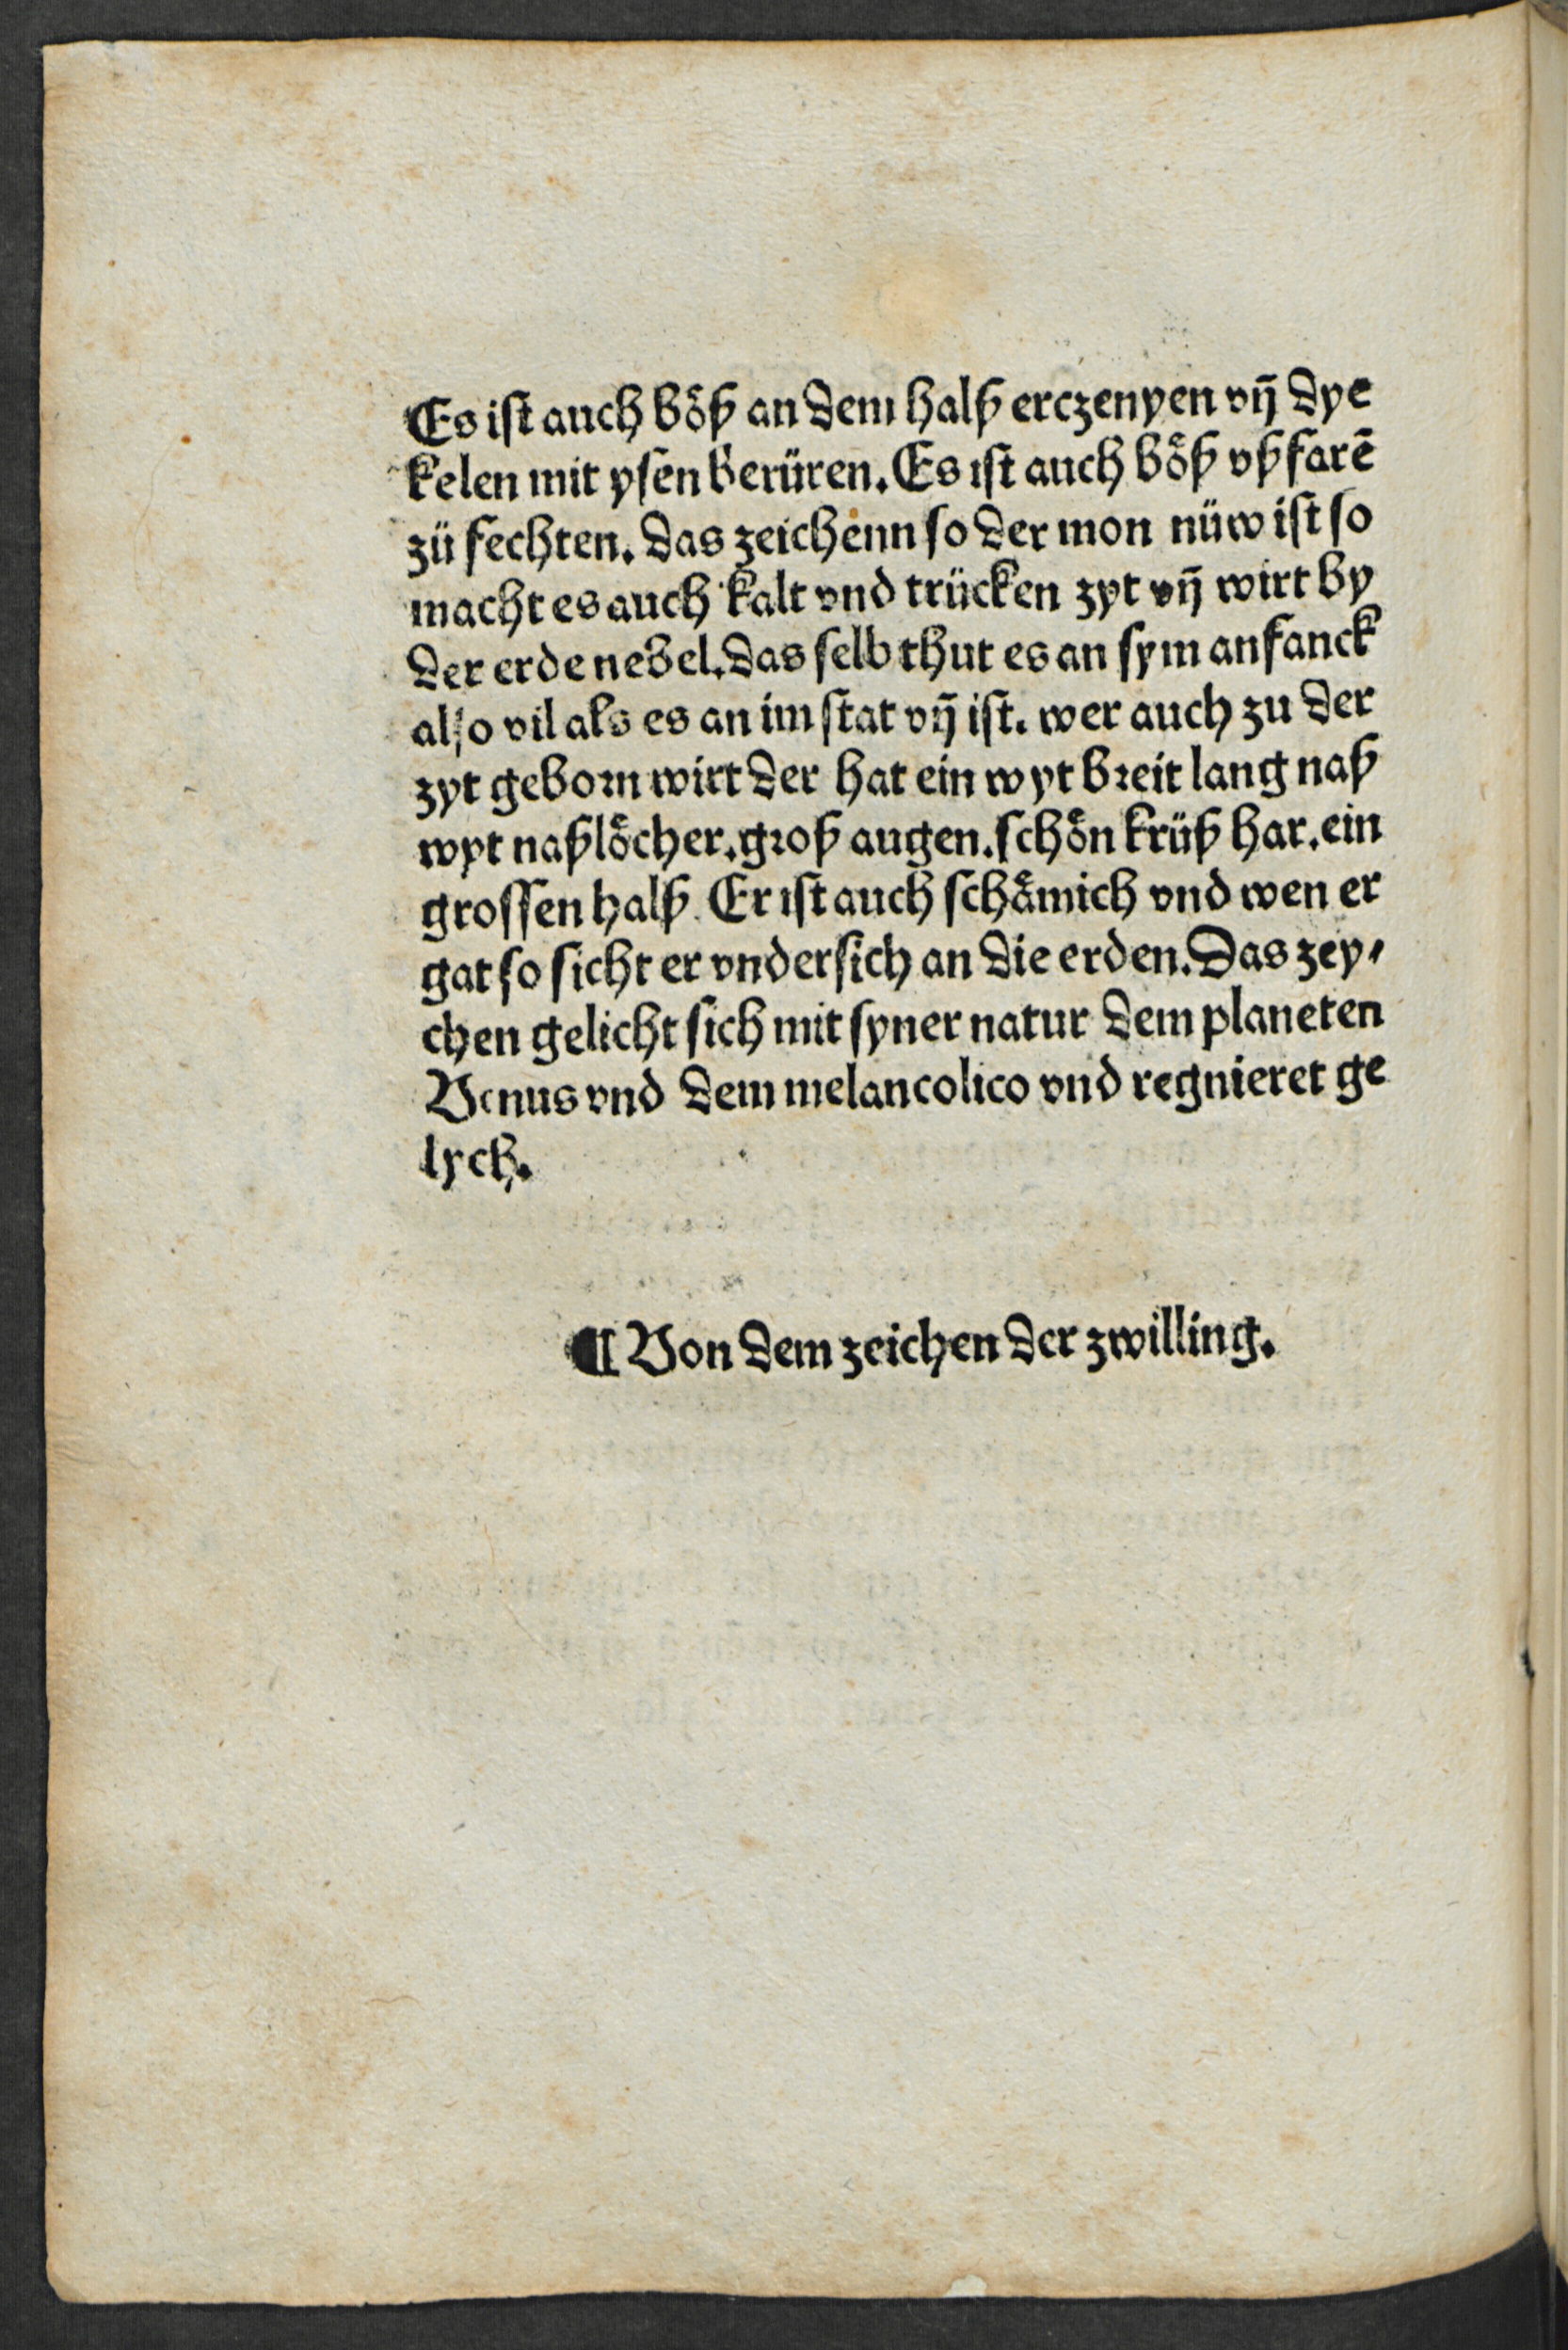 Es ist auch böß an dem halß erczenyen vñ dye
kelen mit ysen berüren. Es ist auch böß vßfarē
zü fechten. das zeichenn so der mon nüw ist so
macht es auch kalt vnd trücken zyt vñ wirt by
der erde nebel. das selb thut es an sym anfanck
also vil als es an im stat vñ ist. wer auch zu der
zyt geborn wirt der hat ein wyt breit lang naß
wyt naßlöcher. groß augen. schön krüß har. ein
grossen halß Er ist auch schämich vnd wen er
gat so sicht er vndersich an die erden. Das zey⸗
chen gelicht sich mit syner natur dem planeten
Venus vnd dem melancolico vnd regnieret ge
lych.
¶ Von dem zeichen der zwilling.